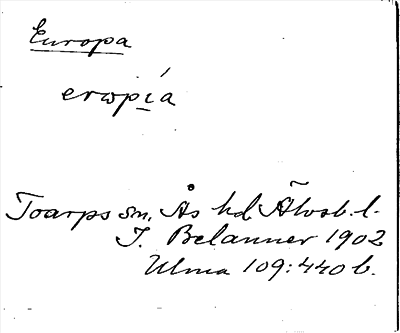 Europa
erωpíạ
Toarps sn, Ås hd Älvsb. l.
J. Belanner 1902
Ulma 109:440 b.